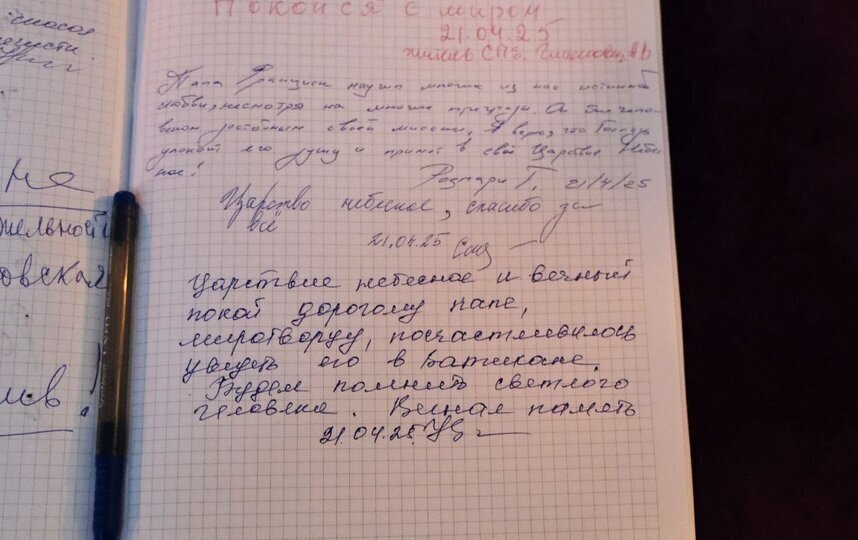 способ
не
Покойся с миром
21.04.25
житель СПб.
Папа Франциск научил многих из нас истинной
любви, несмотря на многие преграды. Он был чело-
веком достойным своей миссии, я верю, что Господь
упокоит его душу и примет в своё Царствие Небес-
ное!
Г. 21/4/25
Царство небесное, спасибо за
всё
21.04.25
Царствие небесное и вечный
покой дорогому папе,
миротворцу, посчастливилось
увидеть его в Ватикане.
Будем помнить светлого
человека. Вечная память
21.04.25.